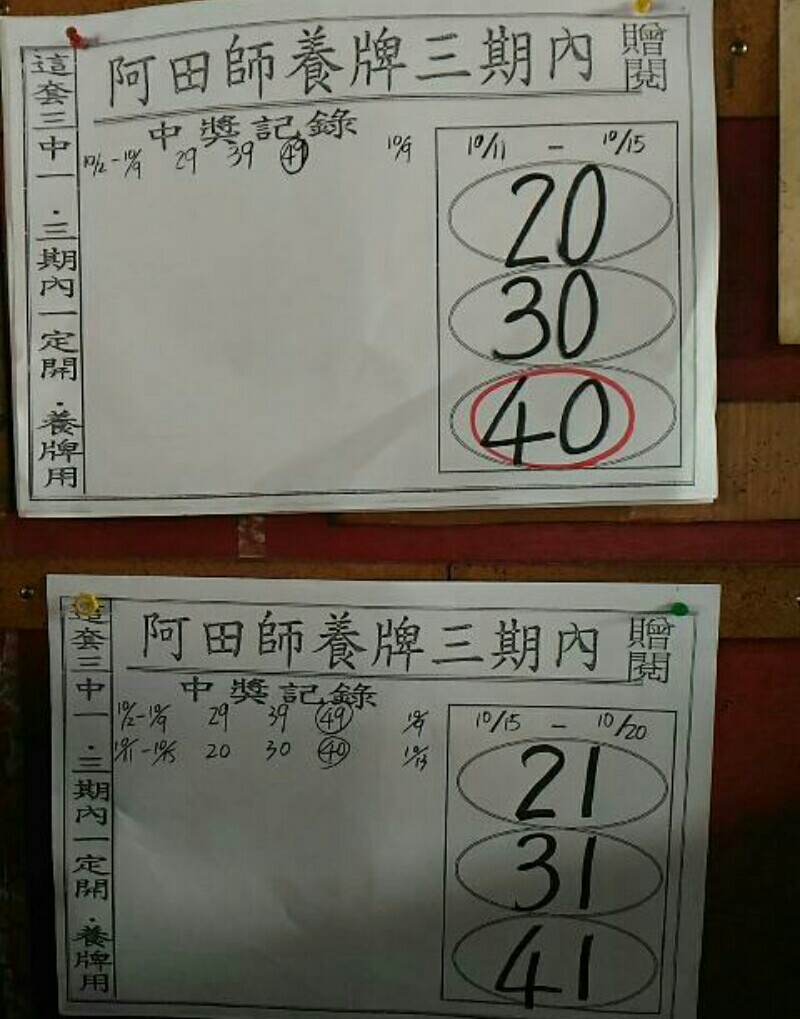 阿田師養牌三期內
贈閱
這套三中一．三期內一定開．養牌用
中獎記錄
10/2-10/9 29 39 49 10/9
10/11 - 10/15
20
30
40
阿田師養牌三期內
贈閱
這套三中一．三期內一定開．養牌用
中獎記錄
10/2-10/9 29 39 49 10/9
10/11-10/15 20 30 40 10/13
10/15 - 10/20
21
31
41